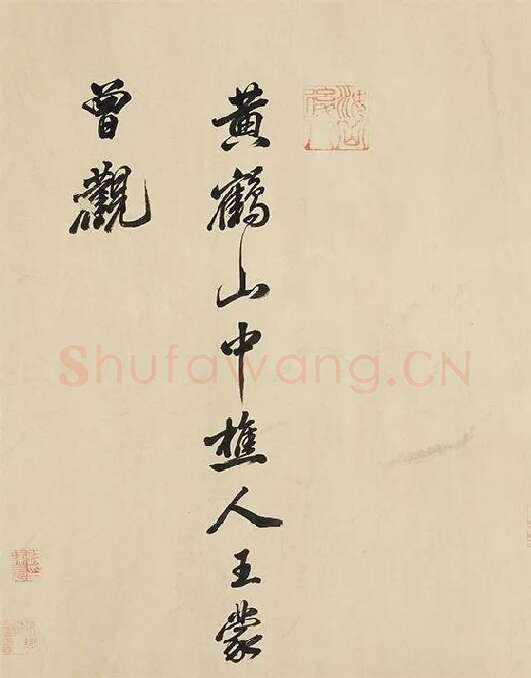 黄鶴山中樵人王蒙
曾觀
Shufawang.CN